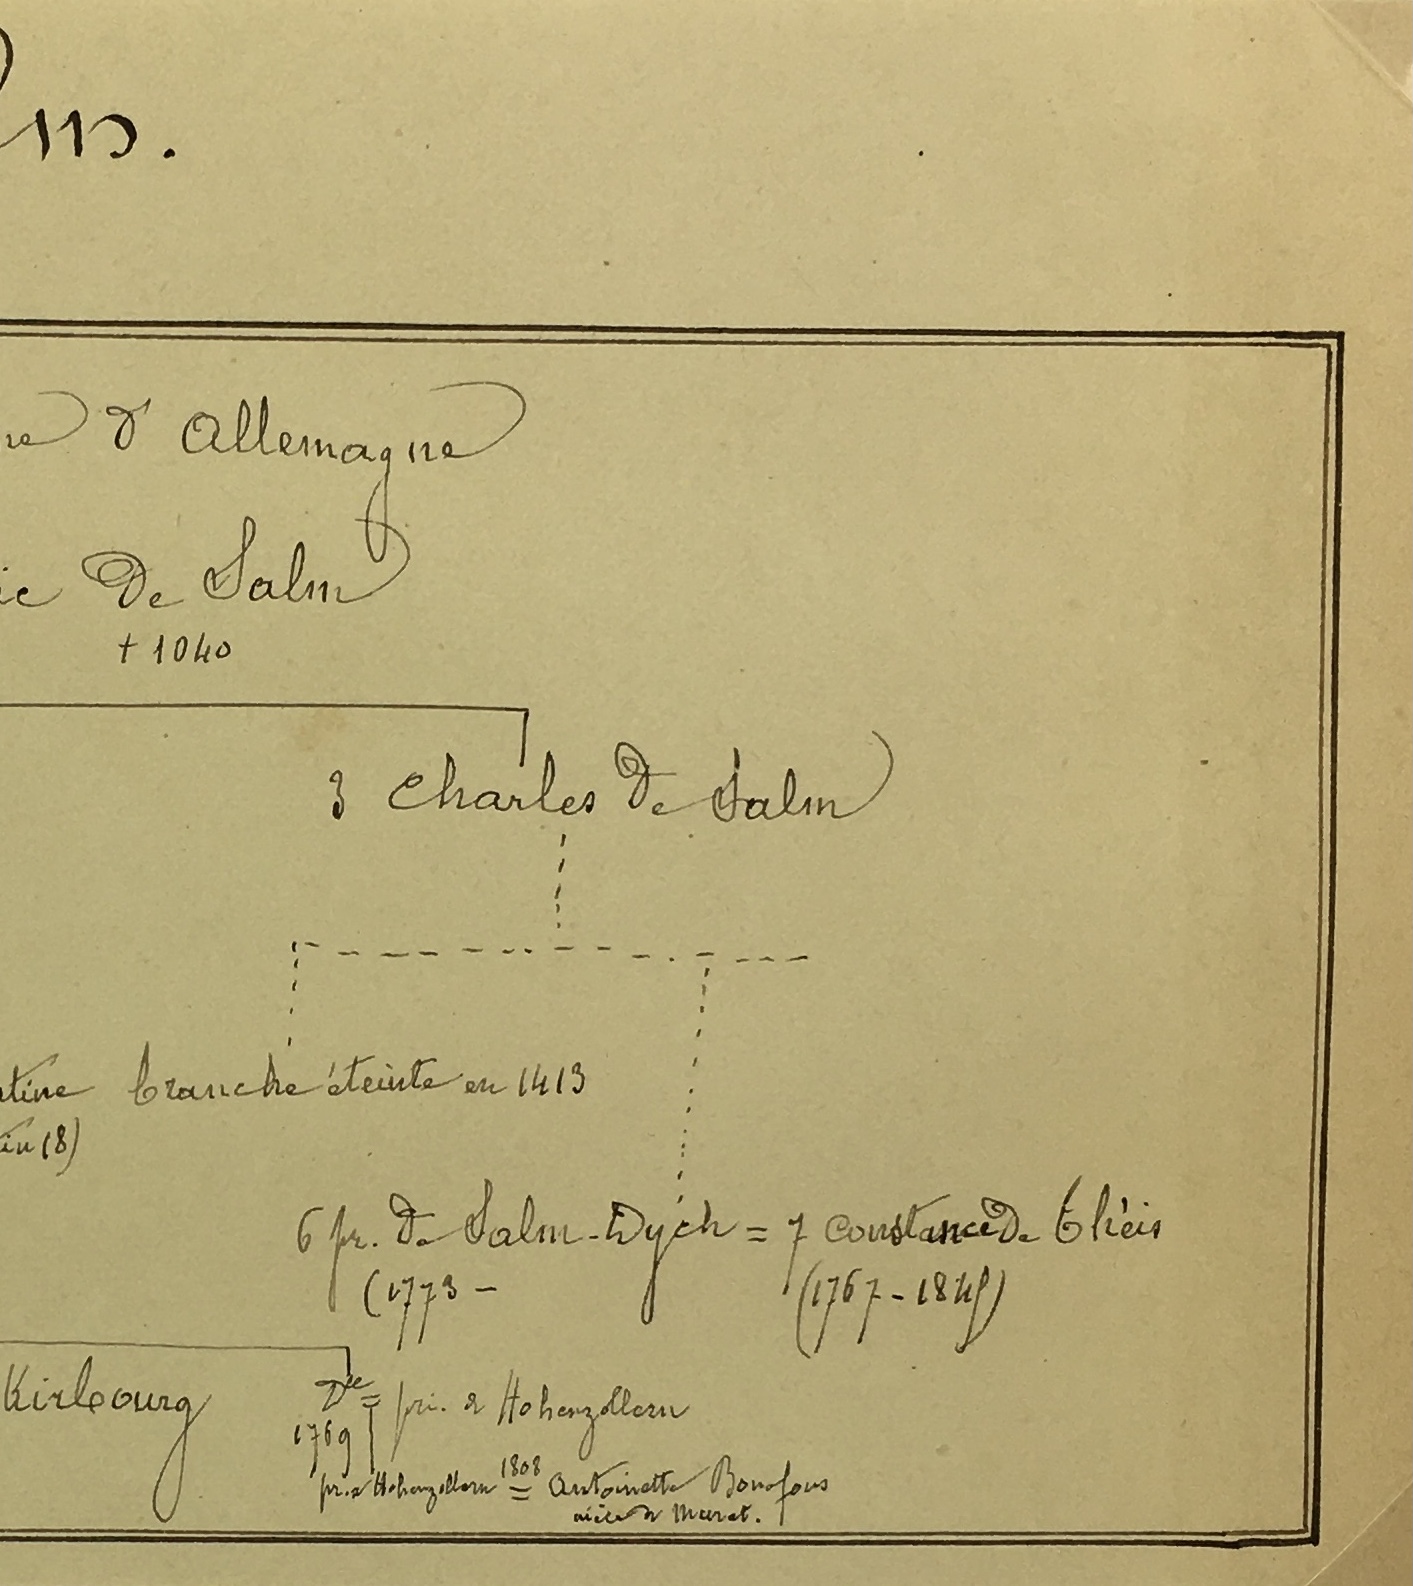 lm.
ne d'Allemagne
ic de Salm
+ 1040
3 Charles de Salm
ntine branche éteinte en 1413
(8)
6 pr. de Salm-Dyck = 7 Constance de Théis
(1773 - (1767-1845)
Kirbourg Dlle = pri. de Hohenzollern
1769
pr. de Hohenzollern 1808 = Antoinette Bonafous
nièce de Murat.